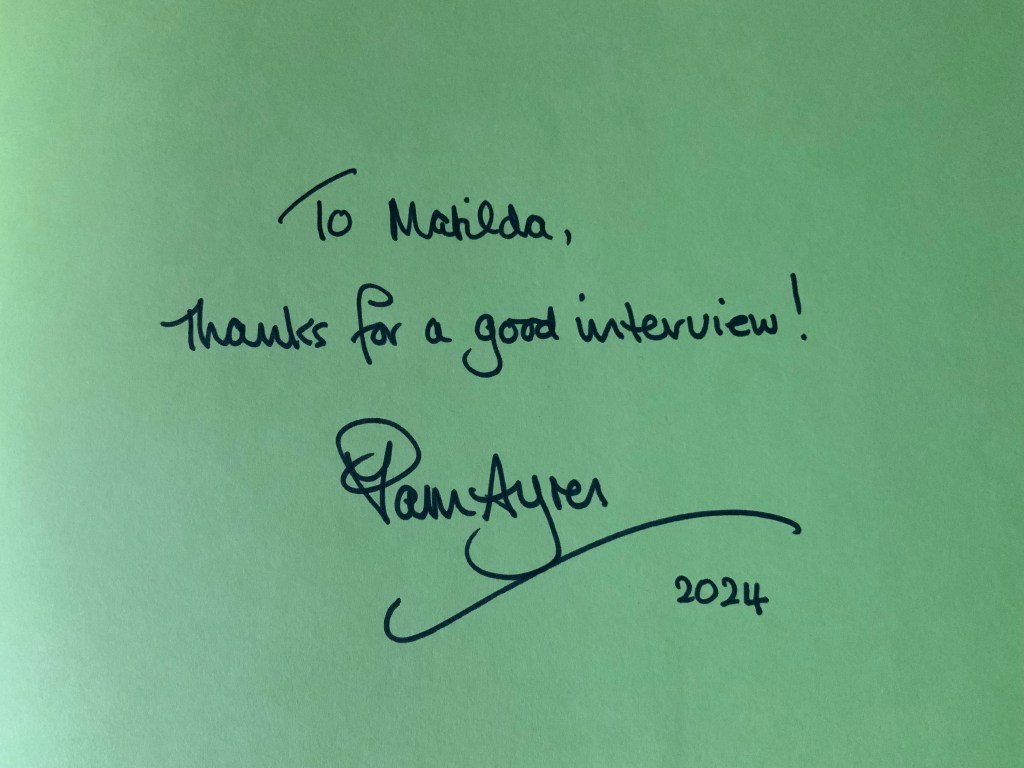 To Matilda,
Thanks for a good interview!
Pam Ayres
2024